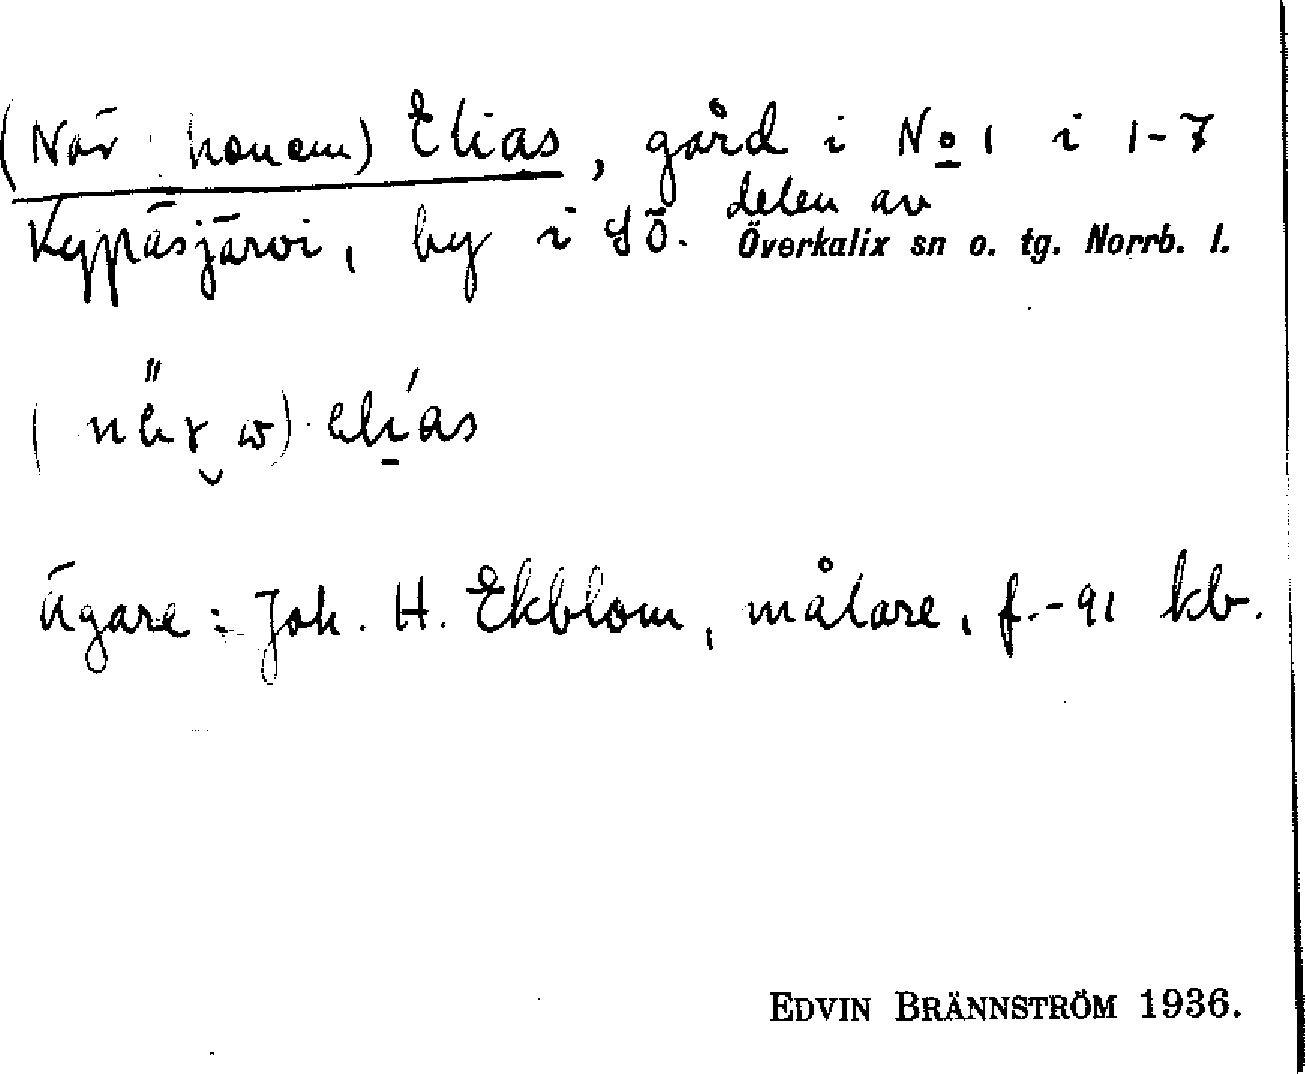 (När honom) Elias, gård i No 1 i 1-7
Kypäsjärvi, by i SÖ. delen av
Överkalix sn o. tg. Norrb. l.
elías
Ägare: Joh. H. Ekblom, målare, f. -91 kb.
EDVIN BRÄNNSTRÖM 1936.